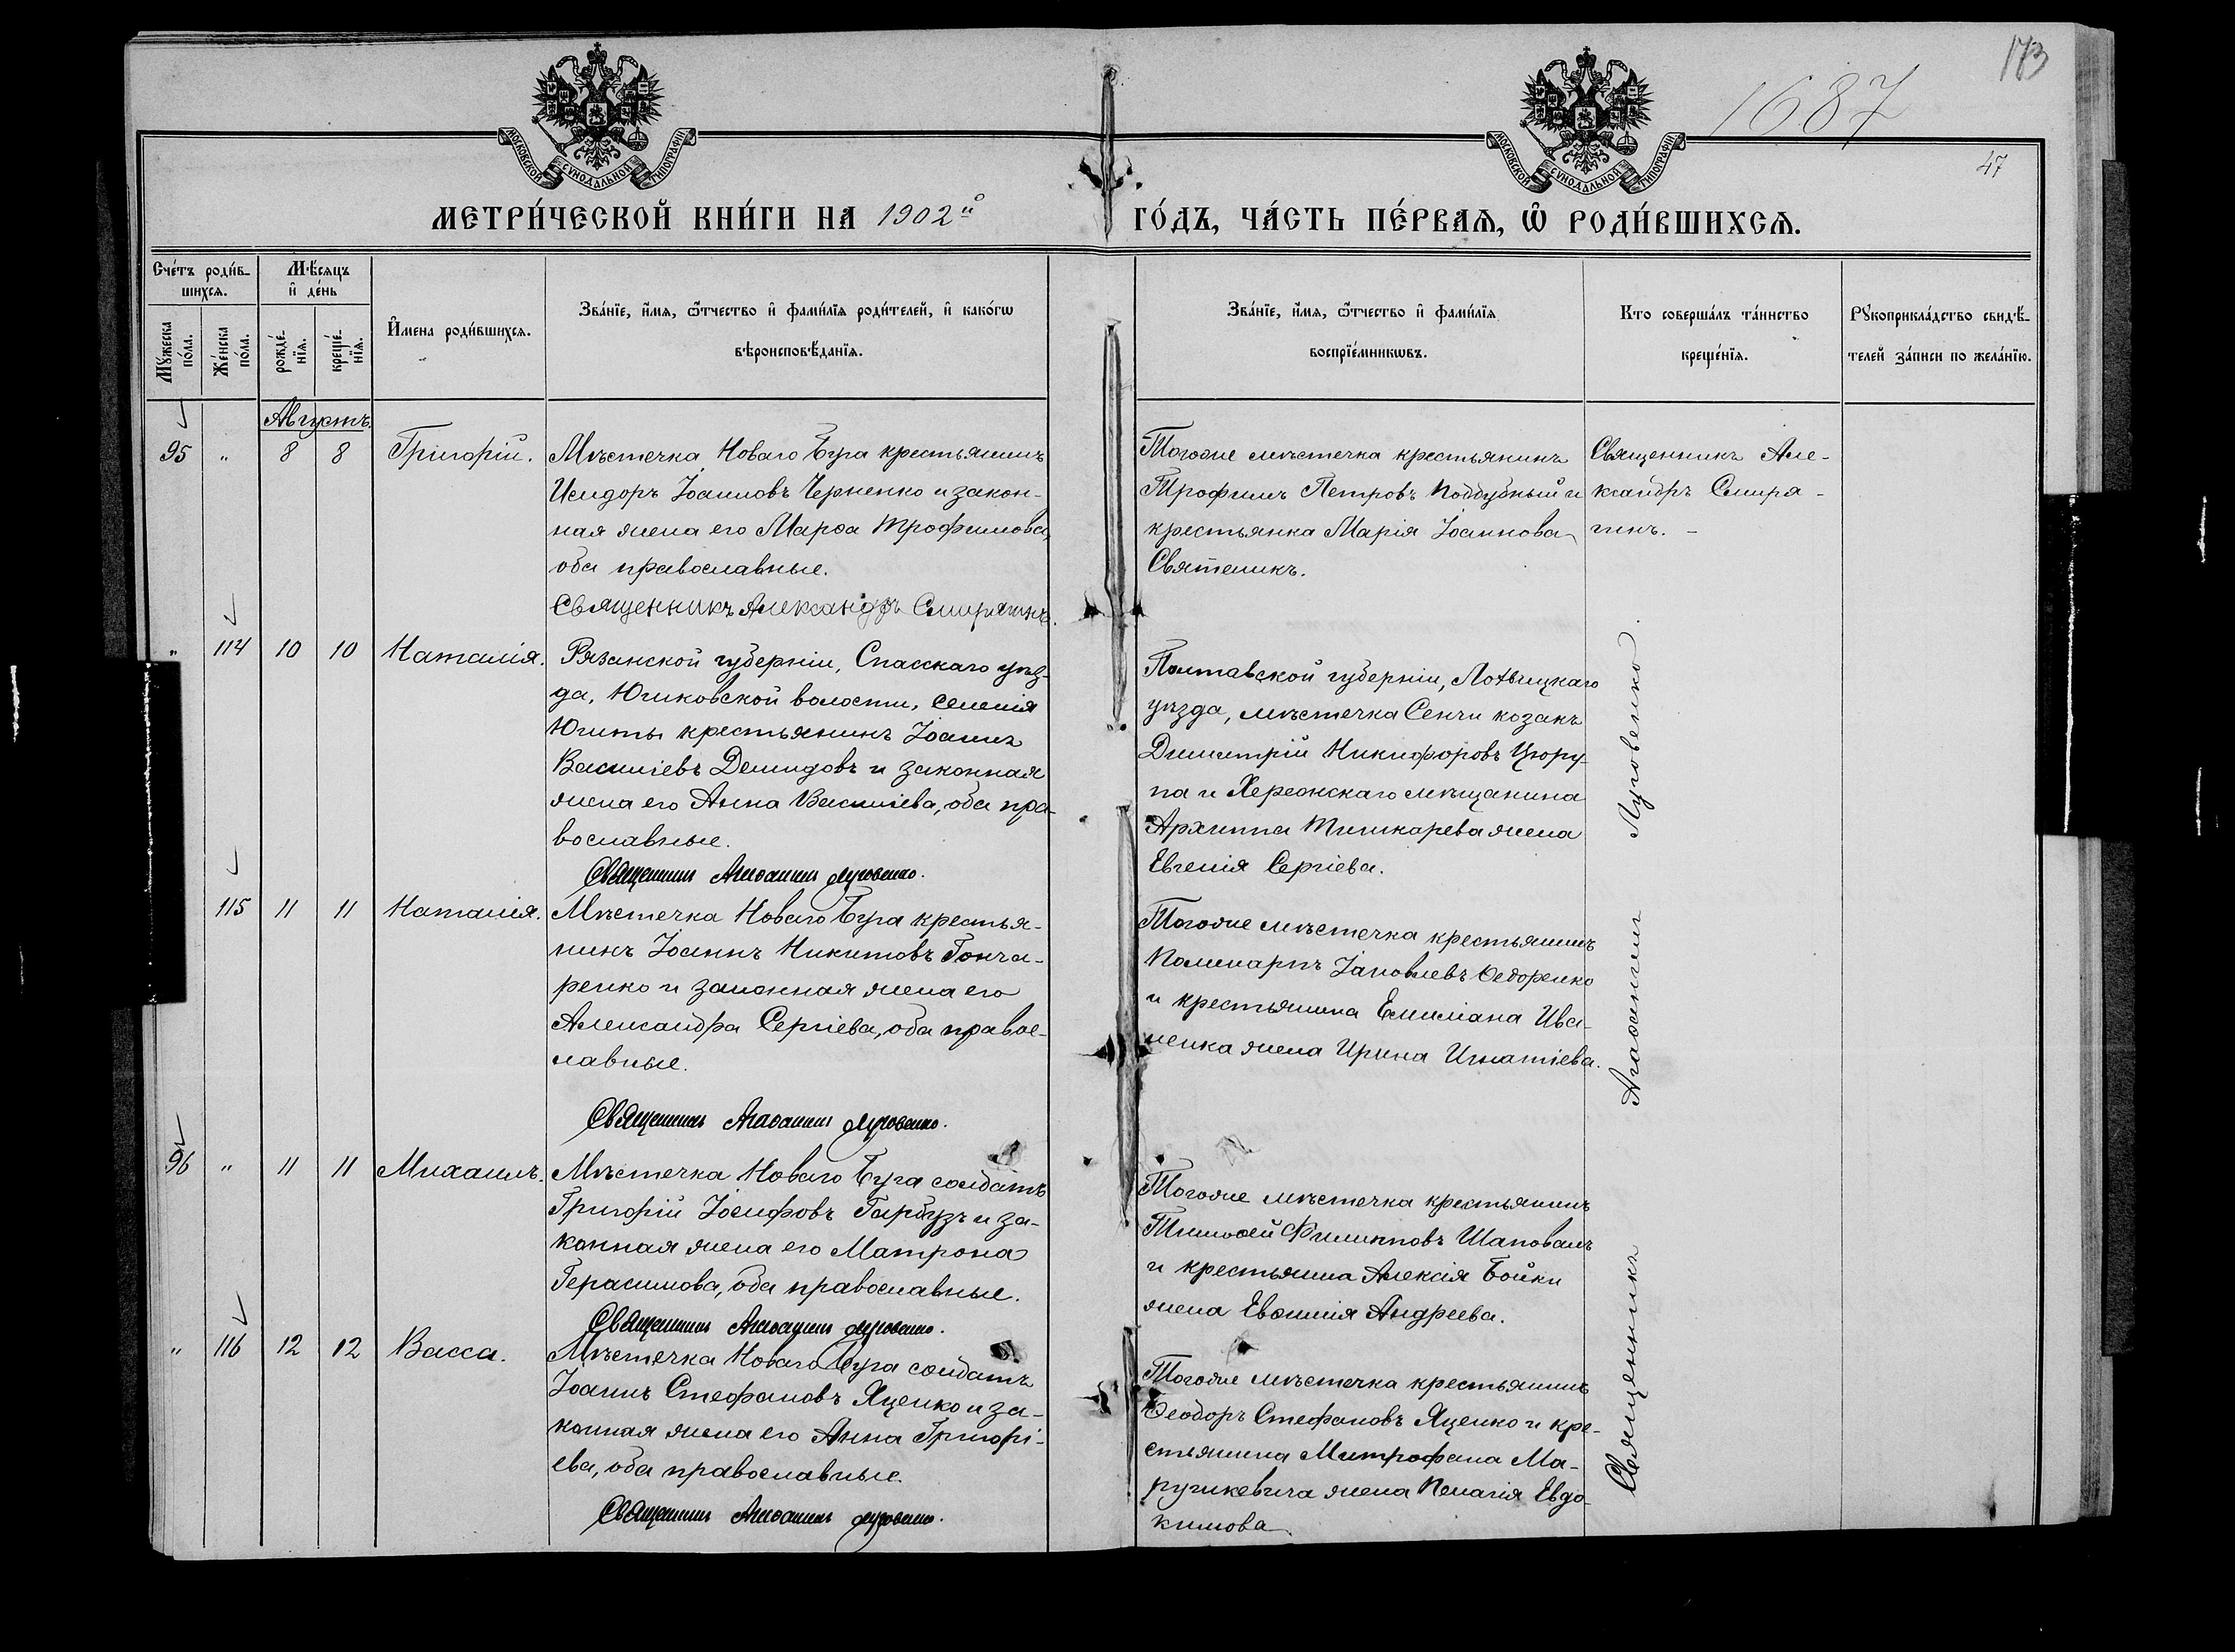 173
1687
47
МОСКОВСКОЙ СУНОДАЛЬНОЙ ТИПОГРАФІИ
МОСКОВСКОЙ СУНОДАЛЬНОЙ ТИПОГРАФІИ
МЕТРИ́ЧЕСКОЙ КНИ́ГИ НА 1902й
ГО́ДЪ, ЧА́СТЬ ПЕ́РВАЯ, Ѽ РОДИ́ВШИХСЯ.
Сче́тъ роди́в-
шихся.
Мѣ́сяцъ
и҆ де́нь
Мꙋ́жеска
по́ла.
Же́нска
по́ла.
рожде́-
нїя.
креще́-
нїя.
И҆мена роди́вшихся.
Зва́нїе, и҆́мя, ѻ҆́тчество и҆ фами́лїя роди́телей, и҆ како́гѡ
вѣроисповѣ́данїя.
Зва́нїе, и҆́мя, ѻ҆́тчество и҆ фами́лїя
воспрїе́мникѡвъ.
Кто соверша́лъ та́инство
креще́нїя.
Рꙋкоприкла́дство свидѣ́-
телей за́писи по жела́нїю.
Августъ.
95 " 8 8 Григорій.
Мѣстечка Новаго Буга крестьянинъ
Исидоръ Іоанновъ Черненко и закон-
ная жена его Марѳа Трофимова,
оба православные.
Священникъ Александръ Смирягинъ.
Тогоже мѣстечка крестьянинъ
Трофимъ Петровъ Поддубный и
крестьянка Марія Іоаннова
Святеникъ.
Священникъ Але-
ксандръ Смиря-
гинъ. -
" 114 10 10 Наталія.
Рязанской губерніи, Спасскаго уѣз-
да, Юшковской волости, селенія
Юшты крестьянинъ Іоаннъ
Василіевъ Демидовъ и законная
жена его Анна Василіева, оба пра-
вославные.
Священникъ Агаѳангелъ Луговенко.
Полтавской губерніи, Лохвицкаго
уѣзда, мѣстечка Сенчи козакъ
Димитрій Никифоровъ Цюру-
па и Херсонскаго мѣщанина
Архипа Тишкарева жена
Евгенія Сергіева.
115 11 11 Наталія.
Мѣстечка Новаго Буга крестья-
нинъ Іоаннъ Никитовъ Гонча-
ренко и законная жена его
Александра Сергіева, оба правос-
лавные.
Священникъ Агаѳангелъ Луговенко.
Тогоже мѣстечка крестьянинъ
Поликарпъ Іаковлевъ Ѳедоренко
и крестьянина Емиліана Ива-
ненка жена Ирина Игнатіева.
96 " 11 11 Михаилъ.
Мѣстечка Новаго Буга солдатъ
Григорій Іосифовъ Гарбузъ и за-
конная жена его Матрона
Герасимова, оба православные.
Священникъ Агаѳангелъ Луговенко.
Тогоже мѣстечка крестьянинъ
Тимоѳей Филипповъ Шаповалъ
и крестьянина Алексія Бойки
жена Евѳимія Андреева.
" 116 12 12 Васса.
Мѣстечка Новаго Буга солдатъ
Іоаннъ Стефановъ Яценко и за-
конная жена его Анна Григорі-
ева, оба православные.
Священникъ Агаѳангелъ Луговенко.
Тогоже мѣстечка крестьянинъ
Ѳеодоръ Стефановъ Яценко и кре-
стьянина Митрофана Ма-
ружкевича жена Пелагія Евдо-
кимова
Священникъ Агаѳангелъ Луговенко.